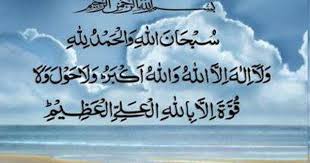 بِسْمِ اللهِ الرَّحْمٰنِ الرَّحِيْمِ
سُبْحَانَ اللهِ وَالْحَمْدُ لِلّٰهِ
وَلَآ اِلٰهَ اِلَّا اللهُ وَاللهُ اَكْبَرُ وَلَا حَوْلَ وَلَا
قُوَّةَ اِلَّا بِاللهِ الْعَلِيِّ الْعَظِيْمِ